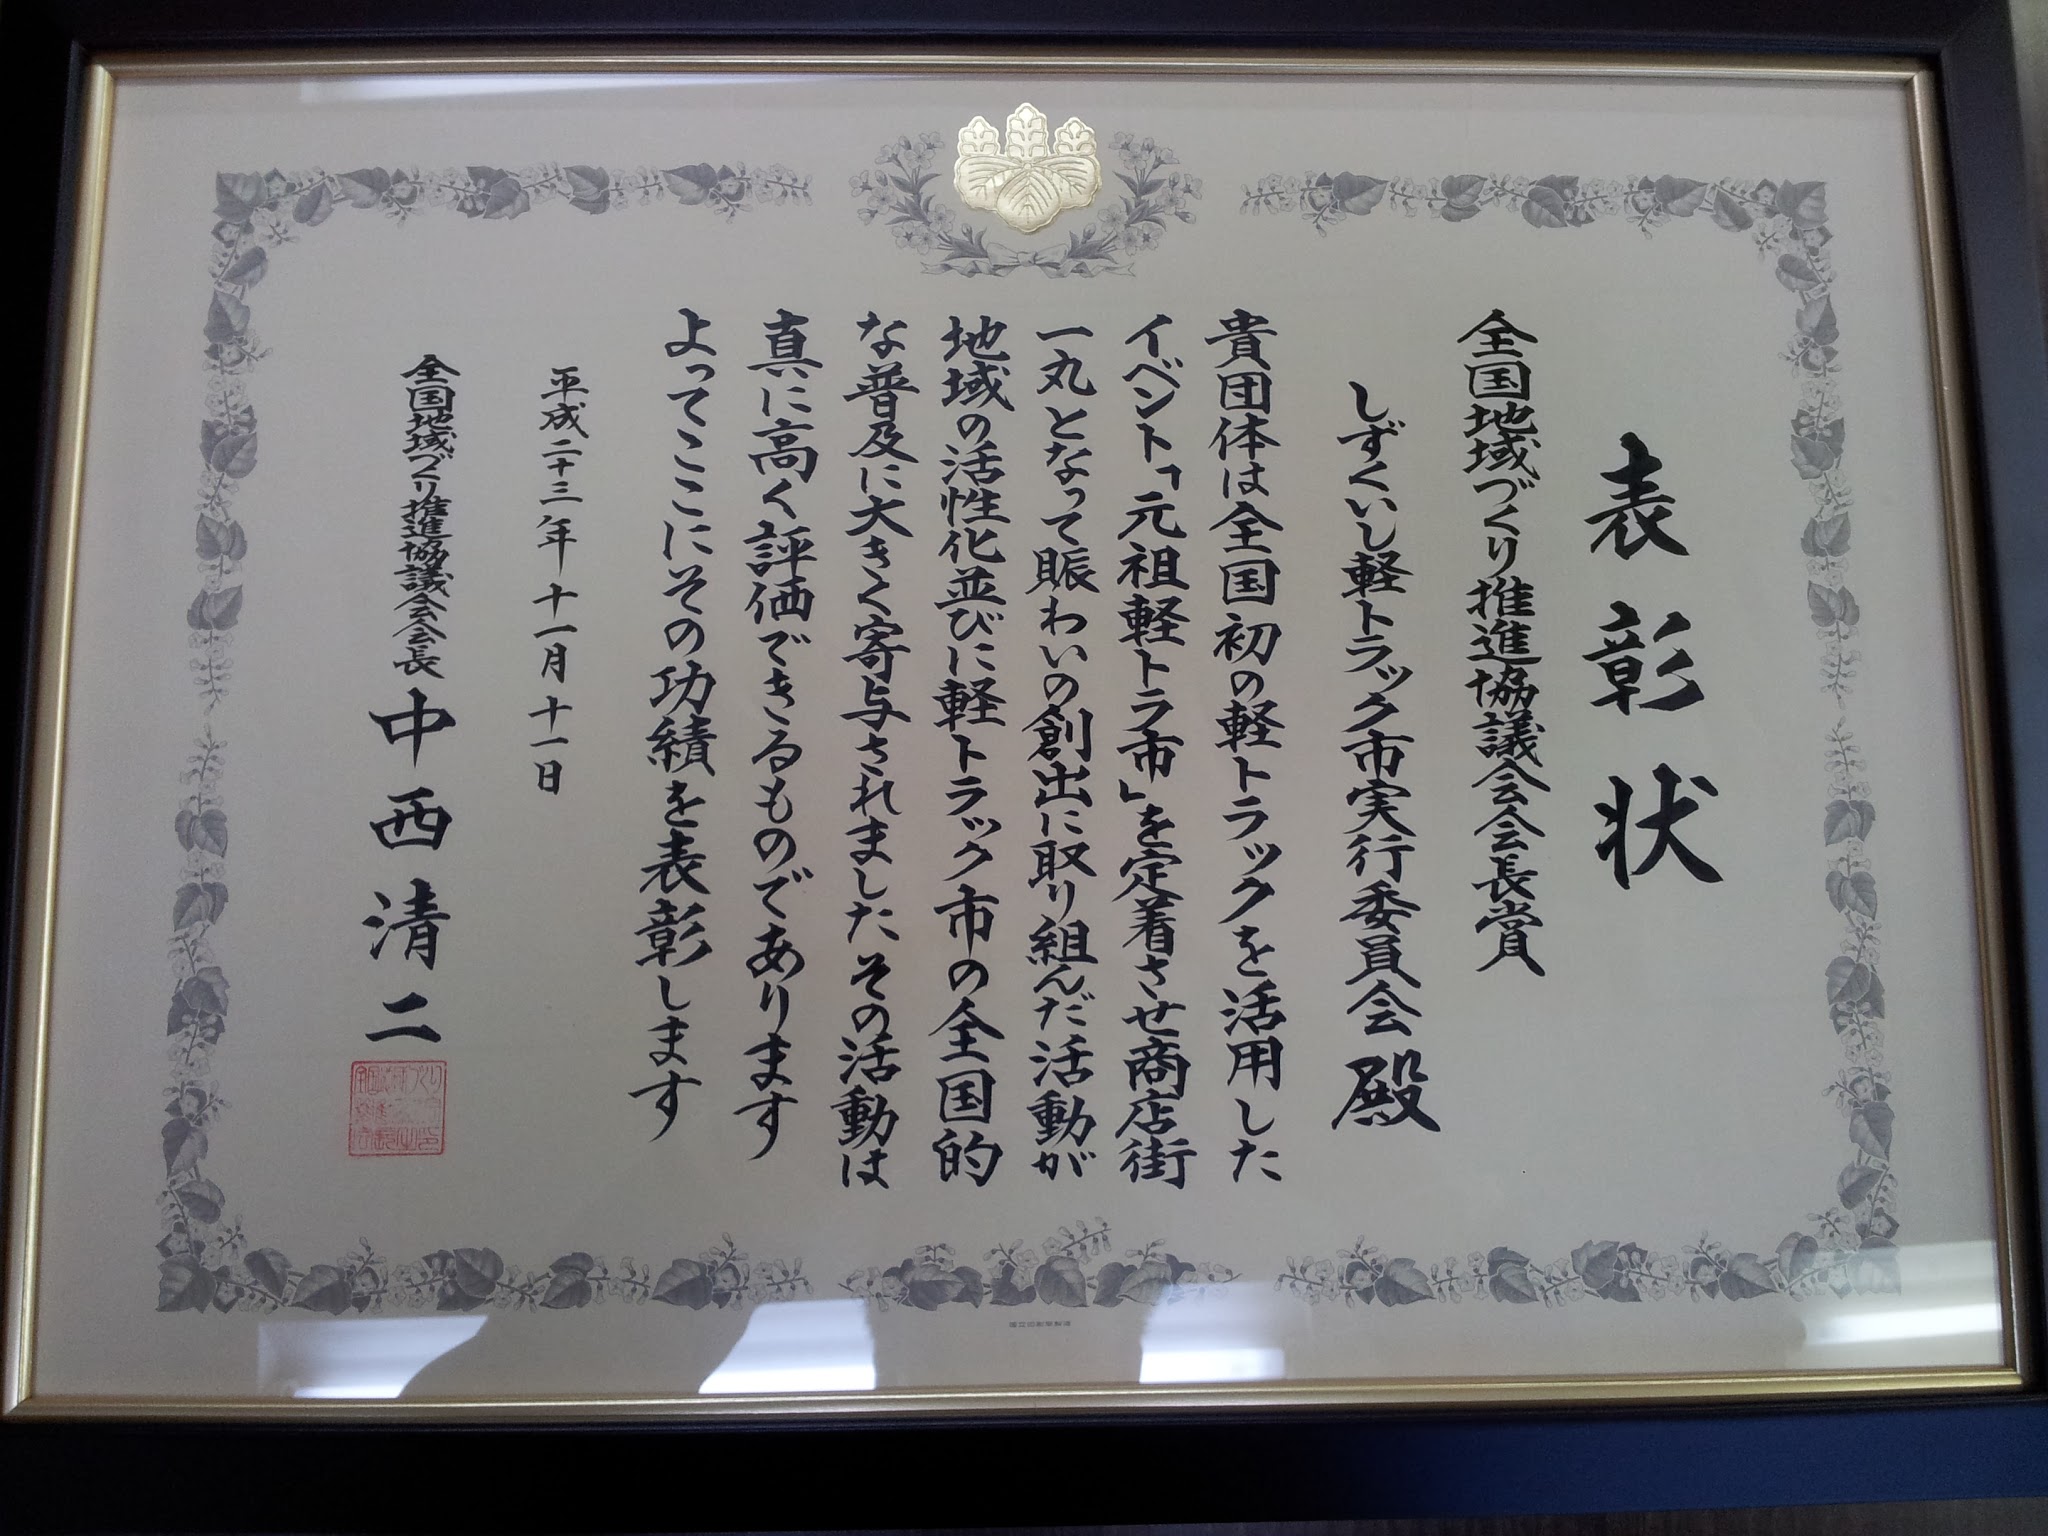 表彰状
全国地域づくり推進協議会会長賞
しずくいし軽トラック市実行委員会殿
貴団体は全国初の軽トラックを活用した
イベント「元祖軽トラ市」を定着させ商店街
一丸となって賑わいの創出に取り組んだ活動が
地域の活性化並びに軽トラック市の全国的
な普及に大きく寄与されましたその活動は
真に高く評価できるものであります
よってここにその功績を表彰します
平成二十三年十一月十一日
全国地域づくり推進協議会会長
中西清二
国立印刷局製造